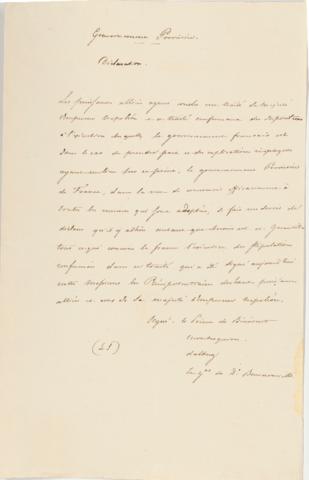 Gouvernement Provisoire.
Déclaration.
Les puissances alliées ayant conclu un traité de Sa Majesté
l'Empereur Napoléon et ce traité renfermant des dispositions
à l'exécution desquelles le gouvernement français est
dans le cas de prendre part et des explications réciproques
ayant eu lieu sur ce point, le gouvernement Provisoire
de France, dans la vue de concourir efficacement à
toutes les mesures qui sont adoptées, se fait un devoir de
déclarer qu'il y adhère autant que besoin est et garantit
tout ce qui concerne la france l'exécution des stipulations
renfermées dans ce traité qui a été signé aujourd'hui
entre messieurs les Plénipotentiaires des hautes puissances
alliées et ceux de Sa majesté l'empereur napoléon.
Signé. le Prince de Bénévent
montesquiou
dalberg
le gal de Dr Beurnonville
(LS)